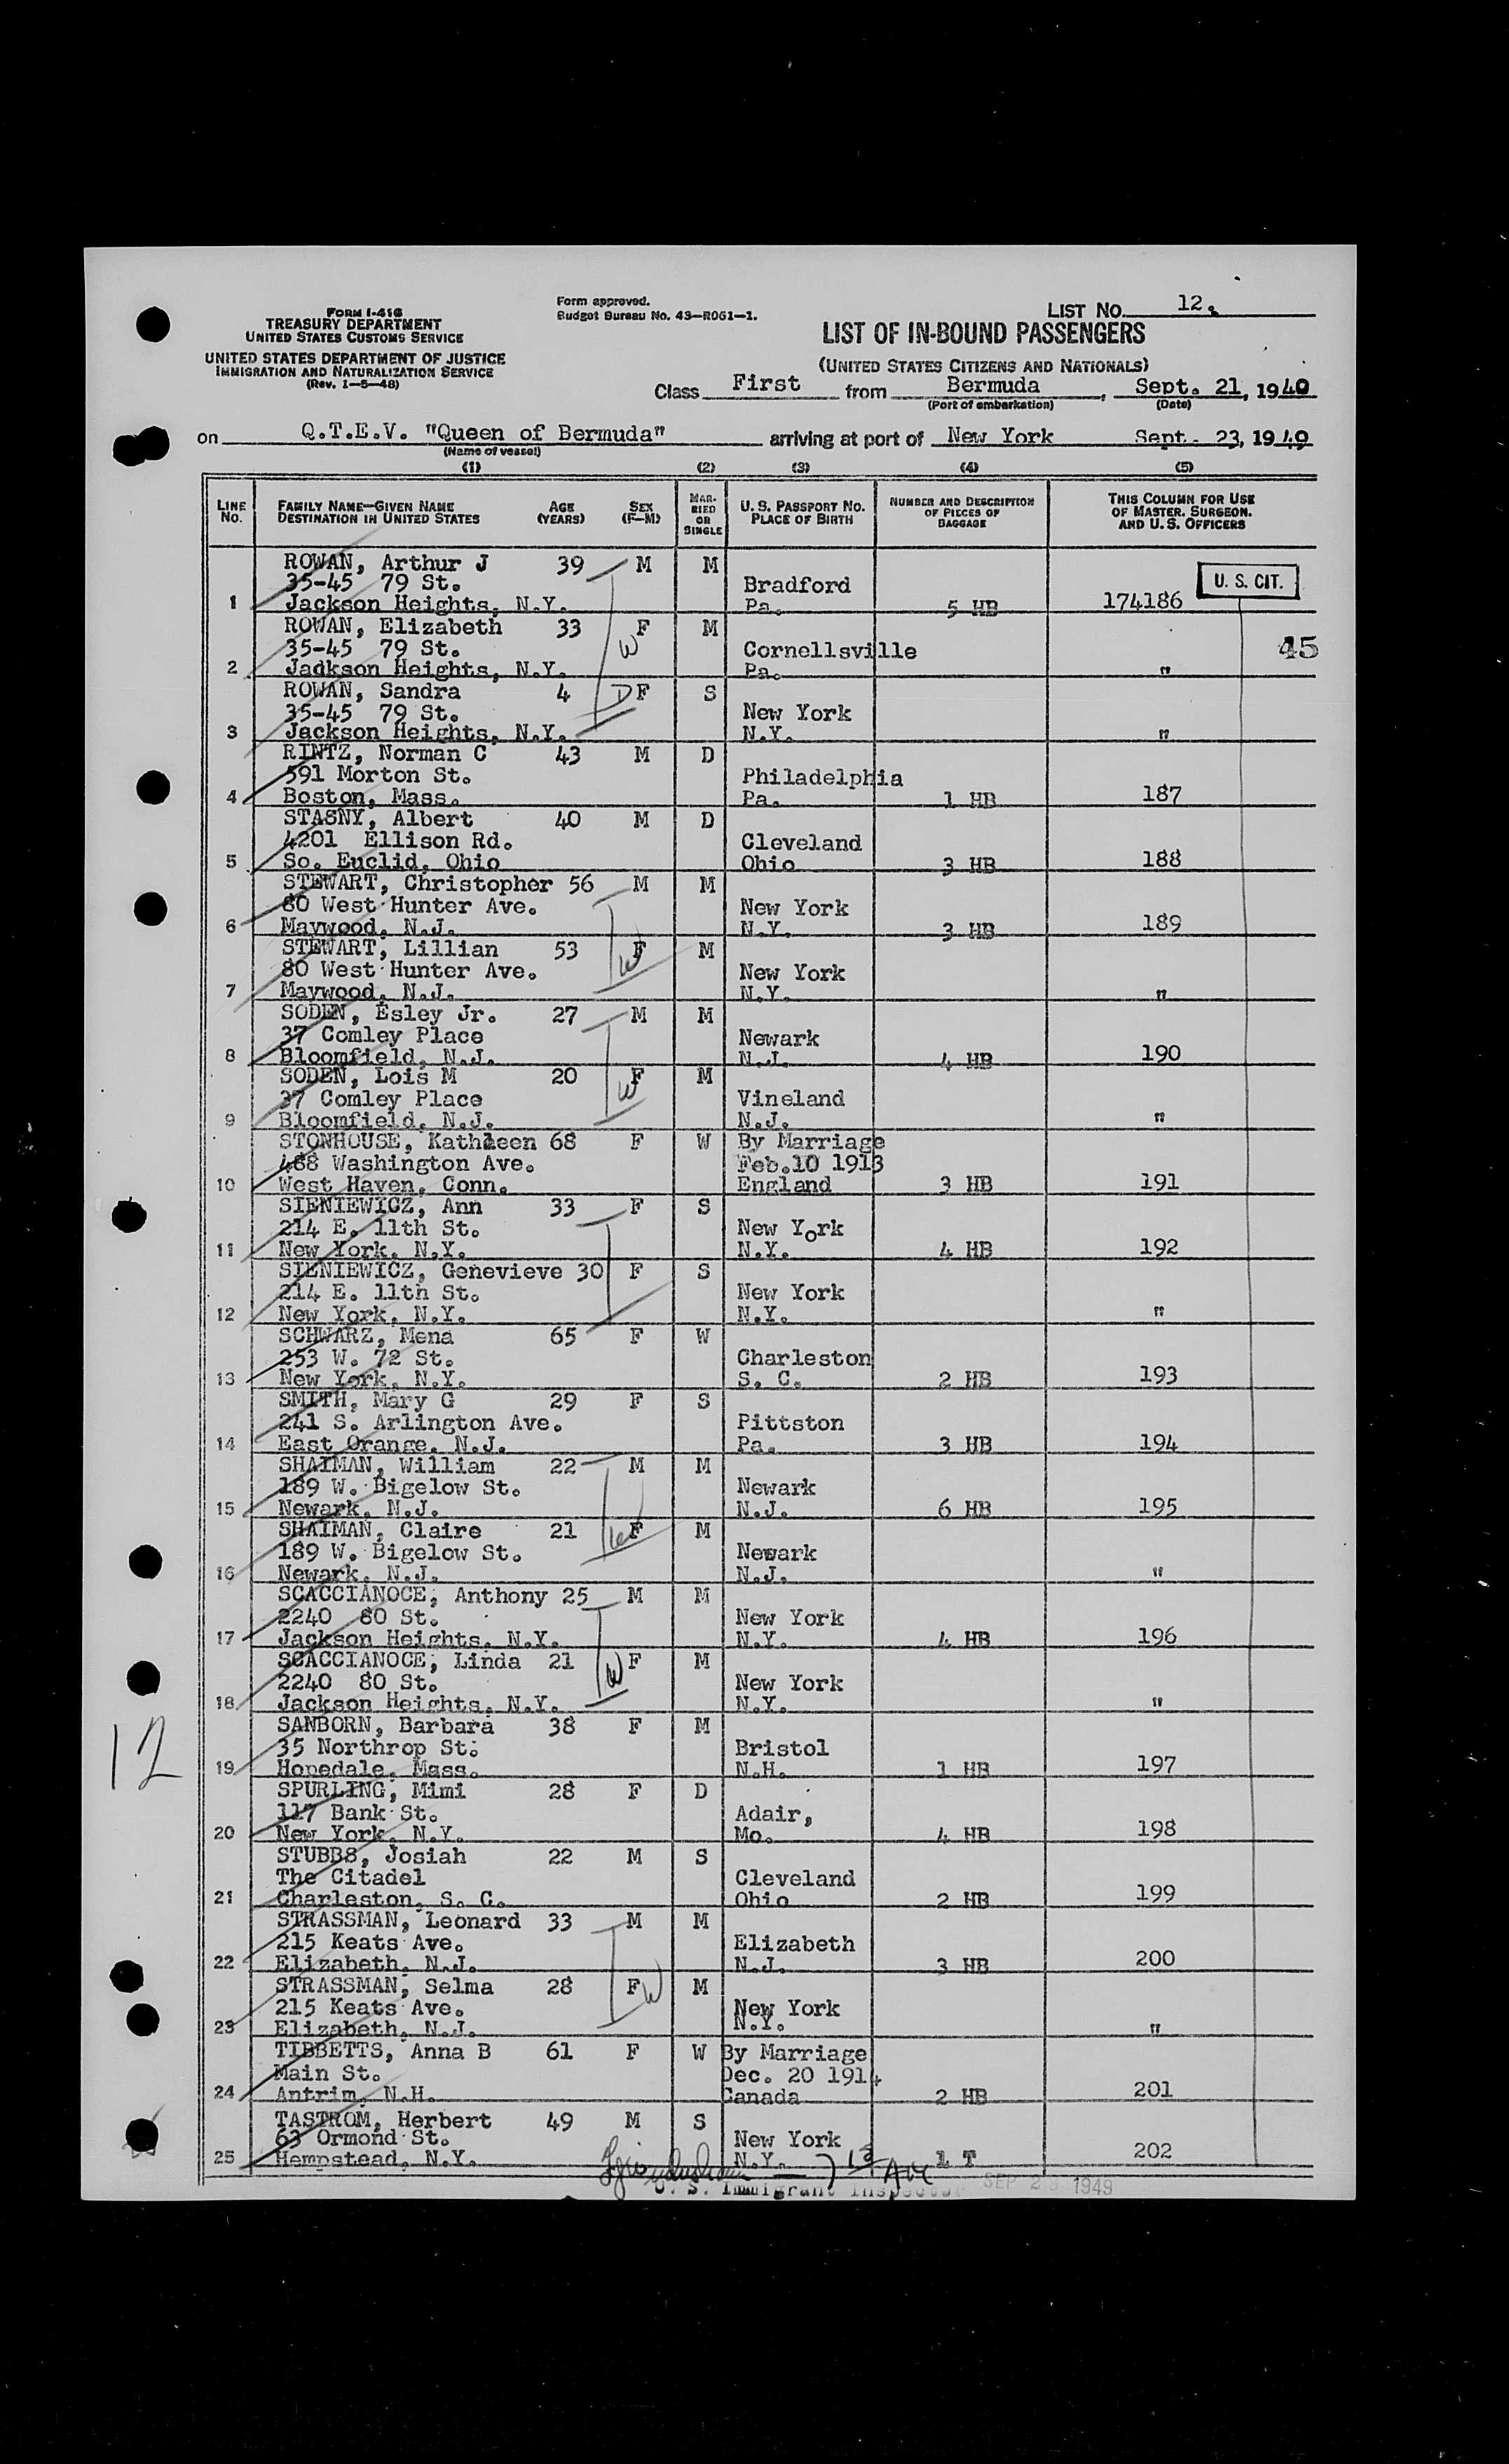 FORM I-416
TREASURY DEPARTMENT
UNITED STATES CUSTOMS SERVICE
UNITED STATES DEPARTMENT OF JUSTICE
IMMIGRATION AND NATURALIZATION SERVICE
(Rev. 1-5-48)
Form approved.
Budget Bureau No. 43-R061-1.
LIST NO. 12.
LIST OF IN-BOUND PASSENGERS
(UNITED STATES CITIZENS AND NATIONALS)
Class First from Bermuda, Sept. 21, 1949
(Port of embarkation) (Date)
on Q.T.E.V. "Queen of Bermuda" arriving at port of New York Sept. 23, 1949
(Name of vessel)
(1) (2) (3) (4) (5)
LINE NO. FAMILY NAME-GIVEN NAME DESTINATION IN UNITED STATES AGE (YEARS) SEX (F-M) MARRIED OR SINGLE U. S. PASSPORT NO. PLACE OF BIRTH NUMBER AND DESCRIPTION OF PIECES OF BAGGAGE THIS COLUMN FOR USE OF MASTER. SURGEON. AND U. S. OFFICERS
ROWAN, Arthur J 39 M M
35-45 79 St. Bradford U. S. CIT.
1 Jackson Heights, N.Y. Pa. 5 HB 174186
ROWAN, Elizabeth 33 F M
35-45 79 St. W Cornellsville 45
2 Jadkson Heights, N.Y. Pa. "
ROWAN, Sandra 4 D F S
35-45 79 St. New York
3 Jackson Heights, N.Y. N.Y. "
RINTZ, Norman C 43 M D
591 Morton St. Philadelphia
4 Boston, Mass. Pa. 1 HB 187
STASNY, Albert 40 M D
4201 Ellison Rd. Cleveland
5 So. Euclid, Ohio Ohio 3 HB 188
STEWART, Christopher 56 M M
80 West Hunter Ave. New York
6 Maywood, N.J. N.Y. 3 HB 189
STEWART, Lillian 53 F M
80 West Hunter Ave. W New York
7 Maywood, N.J. N.Y. "
SODEN, Esley Jr. 27 M M
37 Comley Place Newark
8 Bloomfield, N.J. N.J. 4 HB 190
SODEN, Lois M 20 F M
37 Comley Place W Vineland
9 Bloomfield, N.J. N.J. "
STONHOUSE, Kathleen 68 F W By Marriage
488 Washington Ave. Feb.10 1913
10 West Haven, Conn. England 3 HB 191
SIENIEWICZ, Ann 33 F S
214 E. 11th St. New York
11 New York, N.Y. N.Y. 4 HB 192
SIENIEWICZ, Genevieve 30 F S
214 E. 11th St. New York
12 New York, N.Y. N.Y. "
SCHWARZ, Mena 65 F W
253 W. 72 St. Charleston
13 New York, N.Y. S. C. 2 HB 193
SMITH, Mary G 29 F S
241 S. Arlington Ave. Pittston
14 East Orange, N.J. Pa. 3 HB 194
SHAIMAN, William 22 M M
189 W. Bigelow St. Newark
15 Newark, N.J. N.J. 6 HB 195
SHAIMAN, Claire 21 F M
189 W. Bigelow St. W Newark
16 Newark, N.J. N.J. "
SCACCIANOCE, Anthony 25 M M
2240 80 St. New York
17 Jackson Heights, N.Y. N.Y. 4 HB 196
SCACCIANOCE, Linda 21 W F M
2240 80 St. New York
18 Jackson Heights, N.Y. N.Y. "
SANBORN, Barbara 38 F M
35 Northrop St. Bristol
19 Hopedale, Mass. N.H. 1 HB 197
12
SPURLING, Mimi 28 F D
117 Bank St. Adair,
20 New York, N.Y. Mo. 4 HB 198
STUBBS, Josiah 22 M S
The Citadel Cleveland
21 Charleston, S. C. Ohio 2 HB 199
STRASSMAN, Leonard 33 M M
215 Keats Ave. Elizabeth
22 Elizabeth, N.J. N.J. 3 HB 200
STRASSMAN, Selma 28 F W M
215 Keats Ave. New York
23 Elizabeth, N.J. N.Y. "
TIBBETTS, Anna B 61 F W By Marriage
Main St. Dec. 20 1914
24 Antrim, N.H. Canada 2 HB 201
TASTROM, Herbert 49 M S
63 Ormond St. New York
25 Hempstead, N.Y. N.Y. 1 T 202
U. S. Immigrant Inspector SEP 23 1949